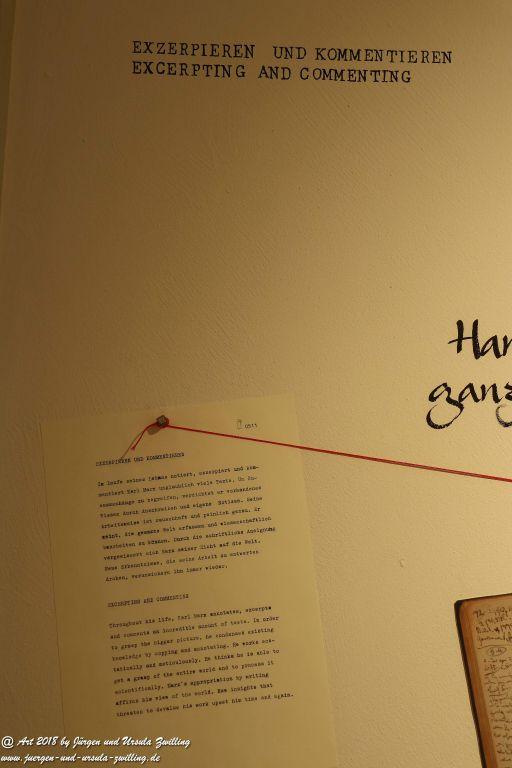 EXZERPIEREN UND KOMMENTIEREN
EXCERPTING AND COMMENTING
Har
ganz
0511
EXZERPIEREN UND KOMMENTIEREN
Im Laufe seines Lebens notiert, exzerpiert und kom-
mentiert Karl Marx unglaublich viele Texte. Um Zu-
sammenhänge zu begreifen, verdichtet er vorhandenes
Wissen durch Abschreiben und eigene Notizen. Seine
Arbeitsweise ist dauerhaft und peinlich genau. Er
meint, die gesamte Welt erfassen und wissenschaftlich
bearbeiten zu können. Durch die schriftliche Aneignung
vergewissert sich Marx seiner Sicht auf die Welt.
Neue Erkenntnisse, die seine Arbeit zu entwerten
drohen, verunsichern ihn immer wieder.
EXCERPTING AND COMMENTING
Throughout his life, Karl Marx annotates, excerpts
and comments an incredible amount of texts. In order
to grasp the bigger picture, he condenses existing
knowledge by copying and annotating. He works con-
stantly and meticulously. He thinks he is able to
get a grasp of the entire world and to process it
scientifically. Marx's appropriation by writing
affirms his view of the world. New insights that
threaten to devalue his work upset him time and again.
@ Art 2018 by Jürgen und Ursula Zwilling
www.juergen-und-ursula-zwilling.de